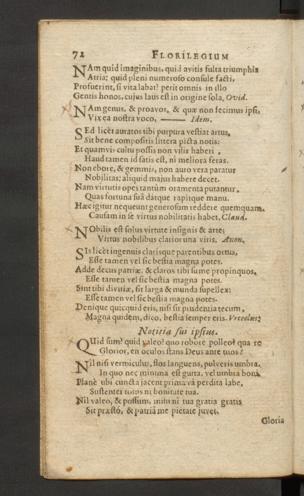 72 FLORILEGIUM
NAm quid imaginibus, quid avitis fulta triumphis
Atria; quid pleni numeroso consule fasti,
Profuerint, si vita labat? perit omnis in illo
Gentis honos, cujus laus est in origine sola, Ovid.
NAm genus, & proavos, & quæ non fecimus ipsi,
Vix ea nostra voco, —— Idem.
SEd licèt auratos tibi purpura vestiat artus,
Sit bene compositis littera picta notis:
Et quamvis cultu possis non vilis haberi,
Haud tamen id satis est, ni meliora feras.
Non ebore, & gemmis, non auro vera paratur
Nobilitas: aliquid majus habere decet.
Nam virtutis opes tantùm oramenta putannur,
Quas fortuna suâ datque rapitque manu.
Hæc igitur nequeunt generosum reddere quemquam,
Causam in se virtus nobilitatis habet, Claud.
NObilis est solus virtute insignis & arte:
Virtus nobilibus clarior una viris. Anon.
SIs licèt ingenuis clarisque parentibus ortus,
Esse tamen vel sic bestia magna potes.
Adde decus patriæ, & claros tibi sume propinquos,
Esse tamen vel sic bestia magna potes.
Sint tibi divitiæ, sit larga & munda supellex:
Esse tamen vel sic bestia magna potes.
Denique quicquid eris, nisi sit prudentia tecum,
Magna quidem, dico, bestia semper eris.
Notitia sui ipsius.
QUid sum? quid valeo? quo robore polleo? qua re
Glorior, en oculos stans Deus ante tuos?
NIl nisi vermiculus, flos languens, pulveris umbra,
In quo nec minima est gutta, vel umbra boni.
Planè ubi cuncta jacent prima vâ perdita labe,
Sustenter totus ni bonitate tua.
Nil valeo, & possum, mihi ni tua gratia gratis
Sit præstò, & patria me pietate juvet.
Gloria